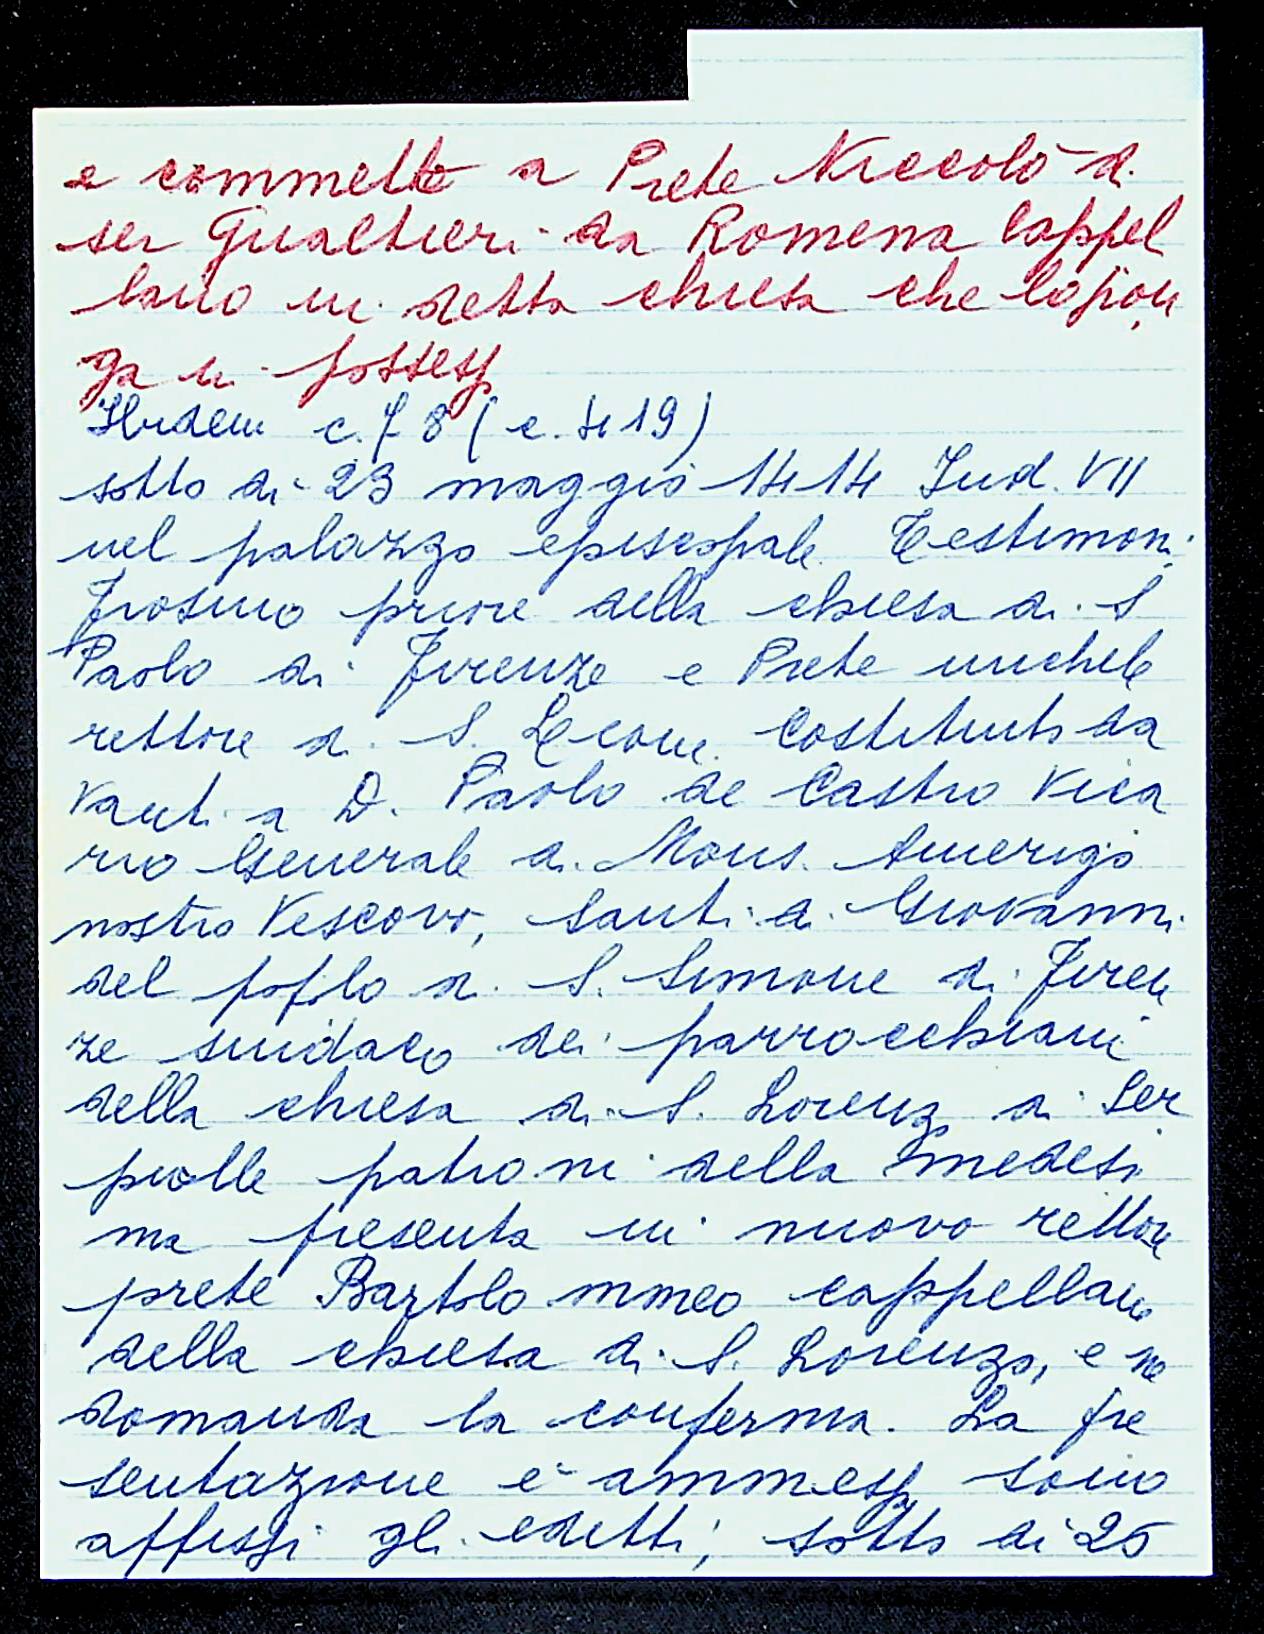 e commette a Prete Niccolò di
ser Gualtieri da Romena Cappel
lano in detta chiesa che lo pon
ga in possesso
Ibidem c. 78 (c. 419)
sotto dì 23 maggio 1414 Ind. VII
nel palazzo episcopale Testimoni
Frosino priore della chiesa di S
Paolo di Firenze e Prete Michele
rettore di S. Leone Costituito da
vanti a D. Paolo de Castro Vica
rio Generale di Mons. Amerigo
nostro Vescovo, Santi di Giovanni
del popolo di S. Simone di Firen
ze sindaco dei parrocchiani
della chiesa di S. Lorenzo a Ser
piolle patroni della medesi
ma presenta in nuovo rettore
prete Bartolommeo cappellano
della chiesa di S. Lorenzo, e ne
domanda la conferma. La pre
sentazione è ammessa sono
affissi gli editti, sotto dì 25